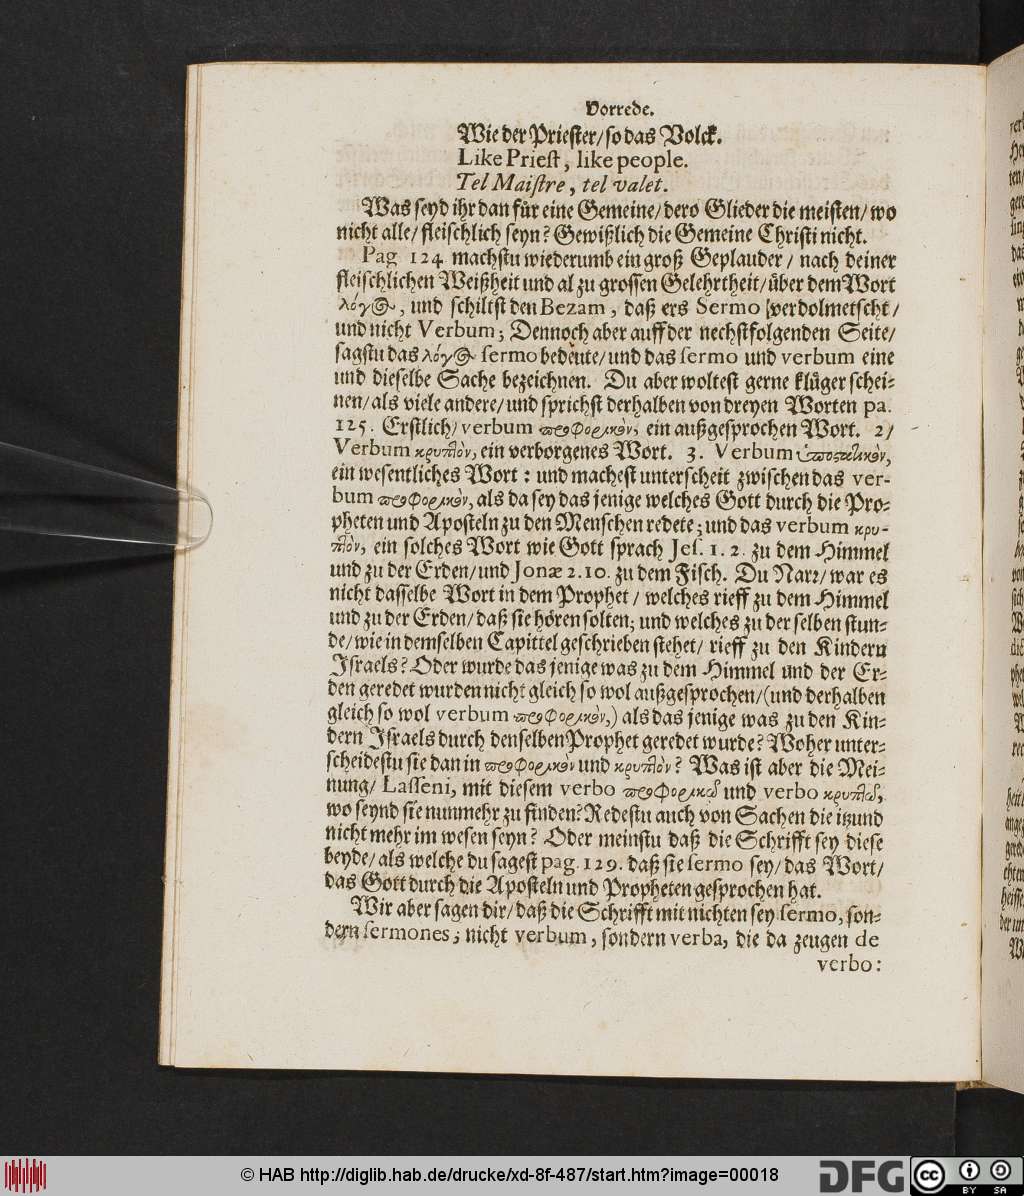 Vorrede.
Wie der Priester/ so das Volck.
Like Priest, like people.
Tel Maistre, tel valet.
Was seyd ihr dan für eine Gemeine/ dero Glieder die meisten/ wo
nicht alle/ fleischlich seyn? Gewißlich die Gemeine Christi nicht.
Pag 124 machstu wiederumb ein groß Geplauder/ nach deiner
fleischlichen Weißheit und al zu grossen Gelehrtheit/ über dem Wort
λόγος, und schiltst den Bezam, daß ers Sermo verdolmetscht/
und nicht Verbum; Dennoch aber auff der nechstfolgenden Seite/
sagstu das λόγος sermo bedeute/ und das sermo und verbum eine
und dieselbe Sache bezeichnen. Du aber woltest gerne klüger schei-
nen/ als viele andere/ und sprichst derhalben von dreyen Worten pa.
125. Erstlich/ verbum προφορικὸν, ein außgesprochen Wort. 2/
Verbum κρυπτὸν, ein verborgenes Wort. 3. Verbum ὑποστατικὸν,
ein wesentliches Wort: und machest unterscheit zwischen das ver-
bum προφορικὸν, als da sey das jenige welches Gott durch die Pro-
pheten und Aposteln zu den Menschen redete; und das verbum κρυ-
πτὸν, ein solches Wort wie Gott sprach Jes. 1. 2. zu dem Himmel
und zu der Erden/ und Jonæ 2. 10. zu dem Fisch. Du Narr/ war es
nicht dasselbe Wort in dem Prophet/ welches rieff zu dem Himmel
und zu der Erden/ daß sie hören solten; und welches zu der selben stun-
de/ wie in demselben Capittel geschrieben stehet/ rieff zu den Kindern
Israels? Oder wurde das jenige was zu dem Himmel und der Er-
den geredet wurden nicht gleich so wol außgesprochen/ (und derhalben
gleich so wol verbum προφορικὸν,) als das jenige was zu den Kin-
dern Israels durch denselben Prophet geredet wurde? Woher unter-
scheidestu sie dan in προφορικὸν und κρυπτὸν? Was ist aber die Mei-
nung/ Lasseni, mit diesem verbo προφορικῷ und verbo κρυπτῷ,
wo seynd sie nunmehr zu finden? Redestu auch von Sachen die itzund
nicht mehr im wesen seyn? Oder meinstu daß die Schrifft sey diese
beyde/ als welche du sagest pag. 129. daß sie sermo sey/ das Wort/
das Gott durch die Aposteln und Propheten gesprochen hat.
Wir aber sagen dir/ daß die Schrifft mit nichten sey sermo, son-
dern sermones; nicht verbum, sondern verba, die da zeugen de
verbo:
© HAB http://diglib.hab.de/drucke/xd-8f-487/start.htm?image=00018
DFG
cc
BY SA